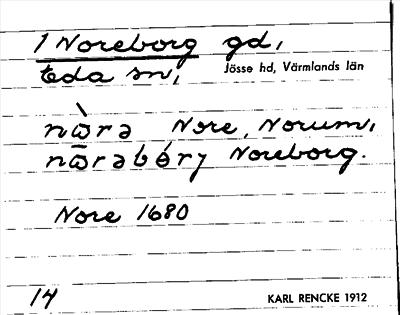 1 Noreborg gd,
Eda sn, Jösse hd, Värmlands län
nὼrə Nore, Norum,
nω̄rəbórj Noreborg.
Nore 1680
14 KARL RENCKE 1912